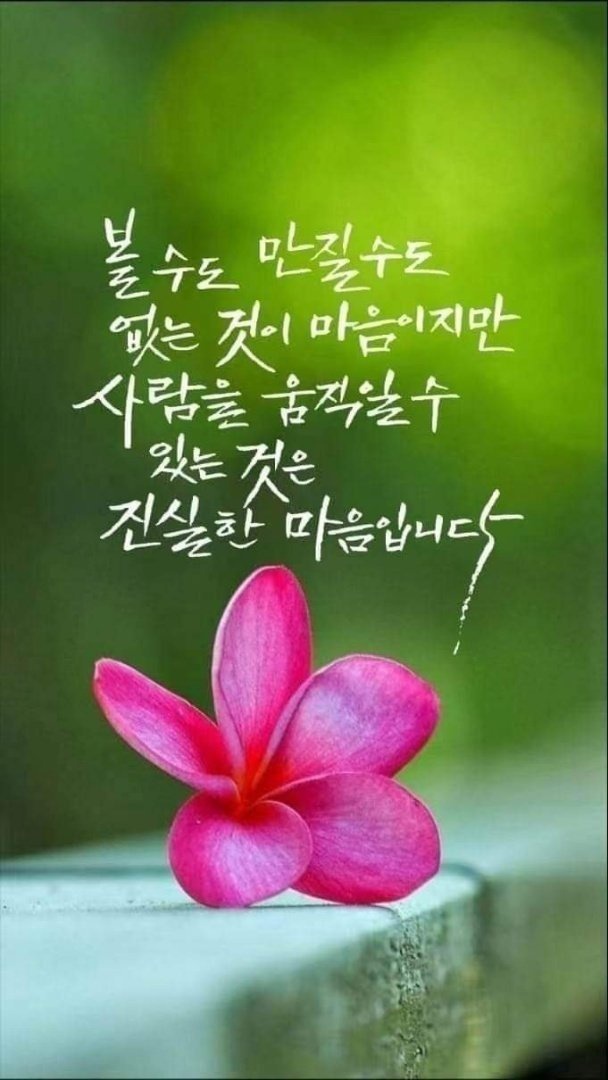 볼 수도 만질수도
없는 것이 마음이지만
사람을 움직일수
있는 것은
진실한 마음입니다